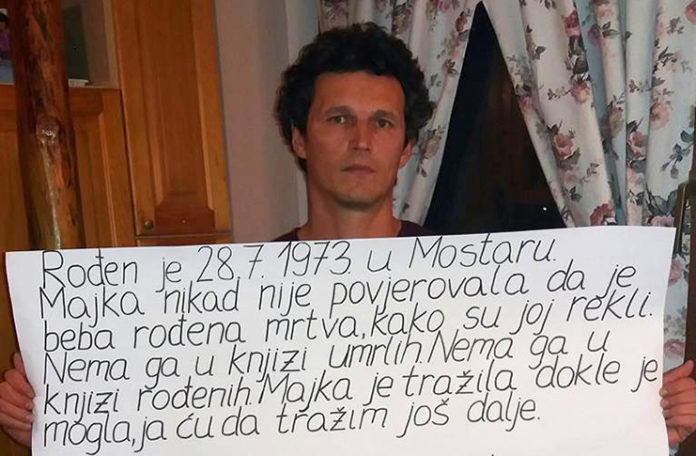 Rođen je 28.7.1973. u Mostaru.
Majka nikad nije povjerovala da je
beba rođena mrtva, kako su joj rekli.
Nema ga u knjizi umrlih. Nema ga u
knjizi rođenih. Majka je tražila dokle je
mogla, ja ću da tražim još dalje.